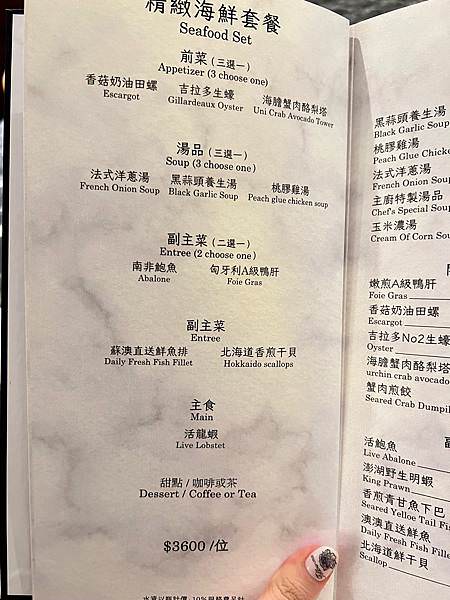 精緻海鮮套餐
Seafood Set
前菜 (三選一)
Appetizer (3 choose one)
香菇奶油田螺 吉拉多生蠔 海膽蟹肉酪梨塔
Escargot Gillardeaux Oyster Uni Crab Avocado Tower
湯品 (三選一)
Soup (3 choose one)
法式洋蔥湯 黑蒜頭養生湯 桃膠雞湯
French Onion Soup Black Garlic Soup Peach glue chicken soup
副主菜 (二選一)
Entree (2 choose one)
南非鮑魚 匈牙利A級鴨肝
Abalone Foie Gras
副主菜
Entree
蘇澳直送鮮魚排 北海道香煎干貝
Daily Fresh Fish Fillet Hokkaido scallops
主食
Main
活龍蝦
Live Lobstet
甜點 / 咖啡或茶
Dessert / Coffee or Tea
$3600 /位
黑蒜頭養生湯
Black Garlic Soup
桃膠雞湯
Peach Glue Chicke
法式洋蔥湯
French Onion Soup
主廚特製湯品
Chef's Special Soup
玉米濃湯
Cream Of Corn Sou
嫩煎A級鴨肝
Foie Gras
香菇奶油田螺
Escargot
吉拉多No2生蠔
Oyster
海膽蟹肉酪梨塔
urchin crab avocado
蟹肉煎餃
Seared Crab Dumpli
活鮑魚
Live Abalone
澎湖野生明蝦
King Prawn
香煎青甘魚下巴
Seared Yelloe Tail Fis
澳澳直送鮮魚
Daily Fresh Fish Fille
北海道鮮干貝
Scallop